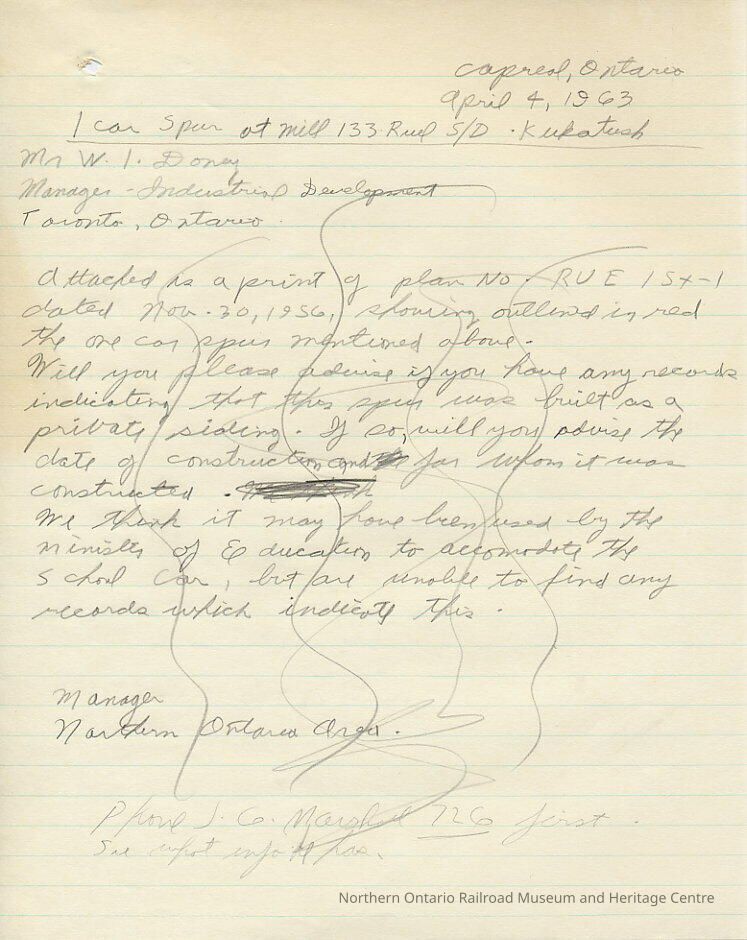 Capreol, Ontario
April 4, 1963
1 car Spur at Mill 133 Ruel S/D - Kukatush
Mr W. I. Doney
Manager - Industrial Development
Toronto, Ontario.
Attached is a print of plan No. RUE 15x-1
dated Nov. 30, 1956, showing outlined in red
the one car spur mentioned above.
Will you please advise if you have any records
indicating that this spur was built as a
private siding. If so, will you advise the
date of construction and for whom it was
constructed.
We think it may have been used by the
Minister of Education to accomodate the
School Car, but are unable to find any
records which indicate this.
Manager
Northern Ontario Area.
Phone J. G. Marshal 726 first.
See what info he has.
Northern Ontario Railroad Museum and Heritage Centre